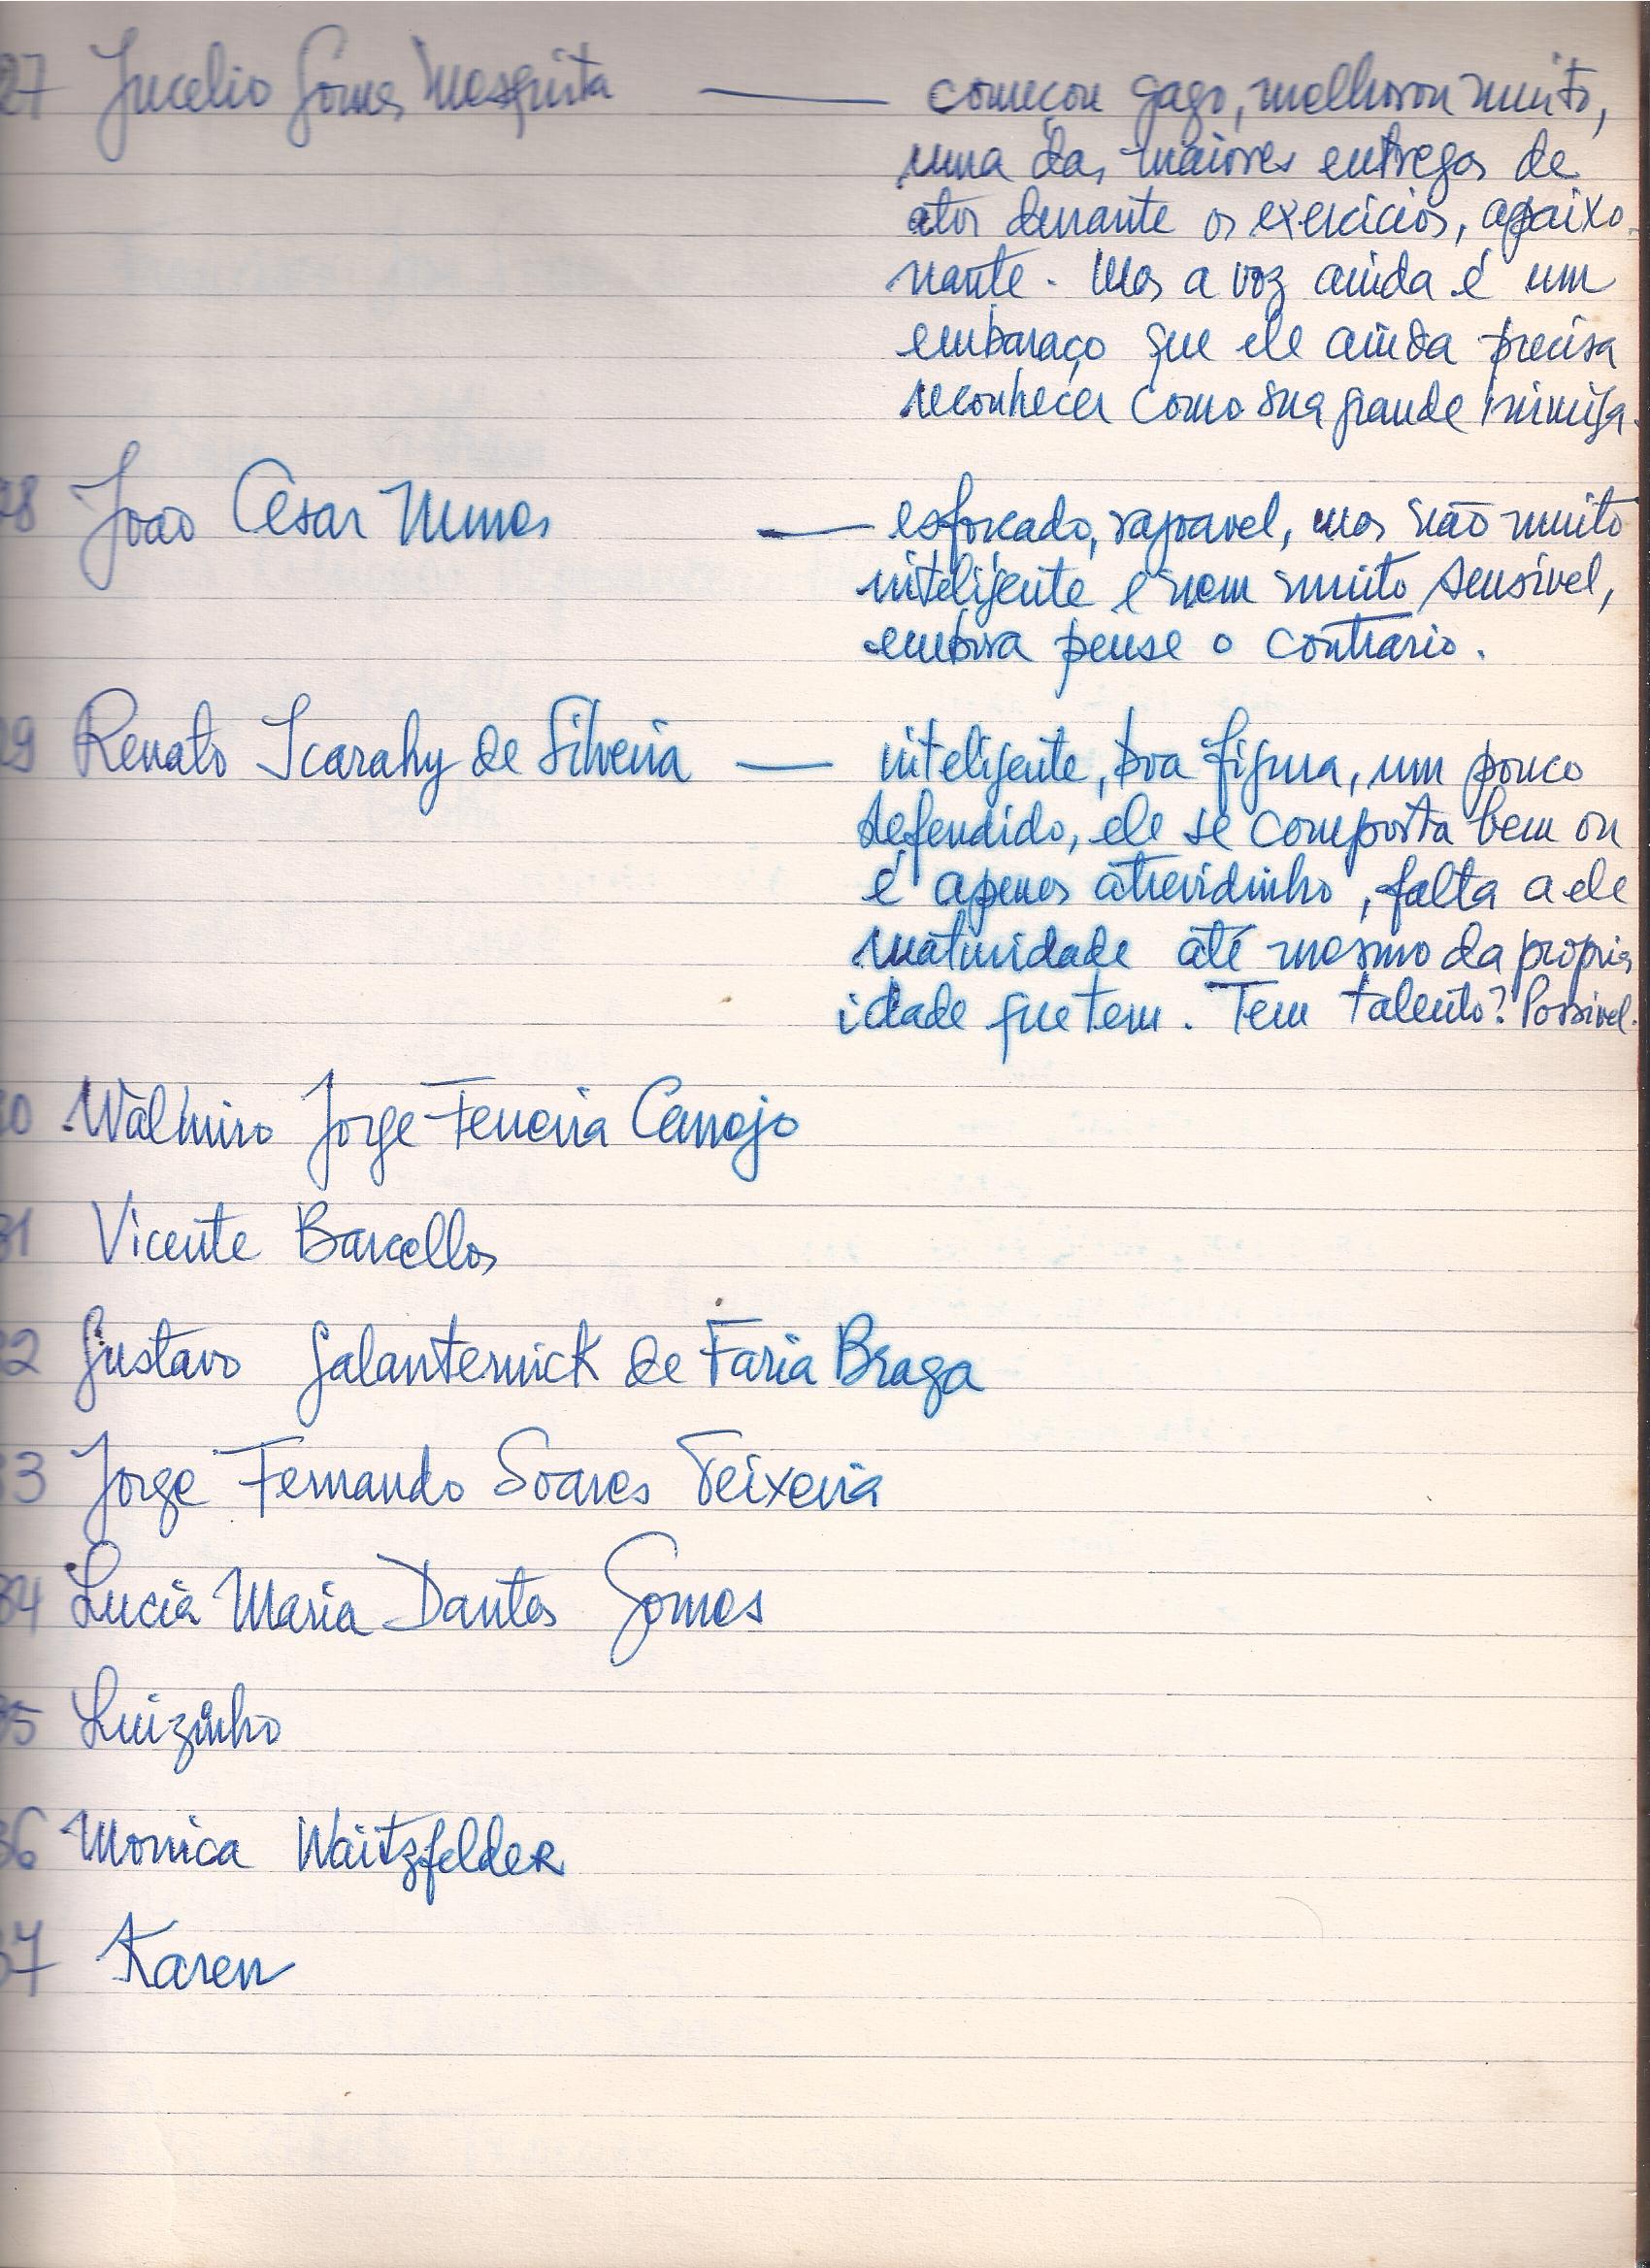 27 Jucelio Gomes Mesquita — começou gago, melhorou muito,
uma das maiores entregas de
ator durante os exercícios, apaixo-
nante. Mas a voz ainda é um
embaraço que ele ainda precisa
reconhecer como sua grande inimiga.
28 João Cesar Nunes — esforcado, razoavel, mas não muito
inteligente e nem muito sensivel,
embora pense o contrario.
29 Renato Icarahy de Silveira — inteligente, boa figura, um pouco
defendido, ele se comporta bem ou
é apenas atrevidinho, falta a ele
maturidade até mesmo da propria
idade que tem. Tem talento? Possivel.
30 Walmiro Jorge Ferreira
31 Vicente Barcellos
32 Gustavo Galanternick de Faria Braga
33 Jorge Fernando Soares Teixeira
34 Lucia Maria Dantas Gomes
35 Luizinho
36 Monica Waitzfelder
37 Karen